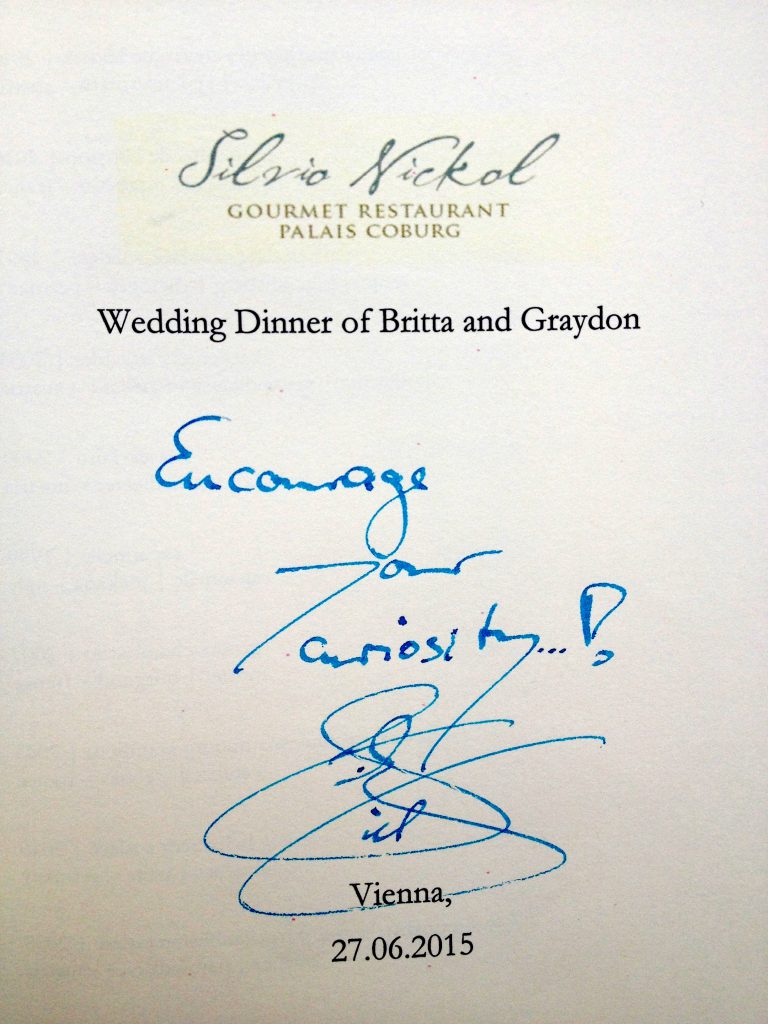 Silvio Nickol
GOURMET RESTAURANT
PALAIS COBURG
Wedding Dinner of Britta and Graydon
Encourage
your
curiosity...!
Vienna,
27.06.2015